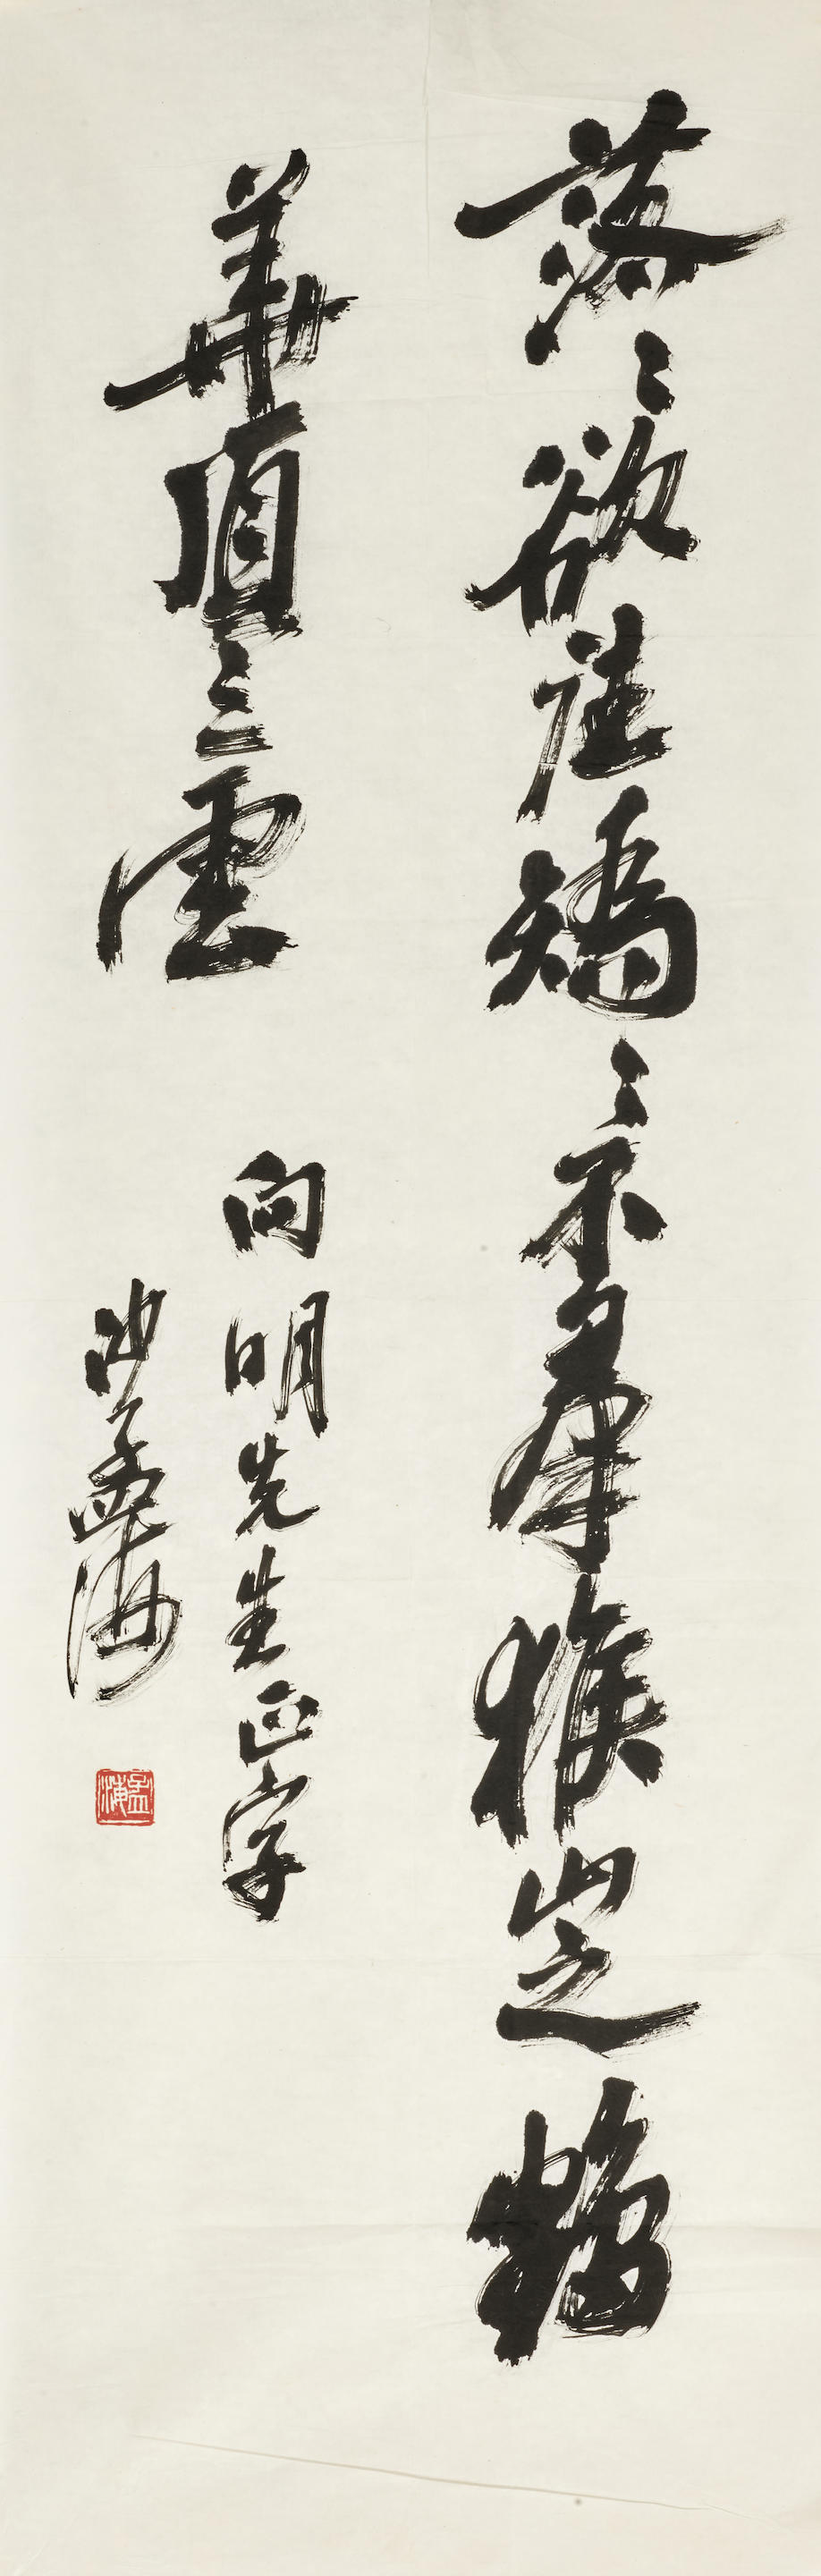 落〻欲往矯〻不羣猴山之鶴
華頂之雲
向明先生正字
沙孟海
孟海